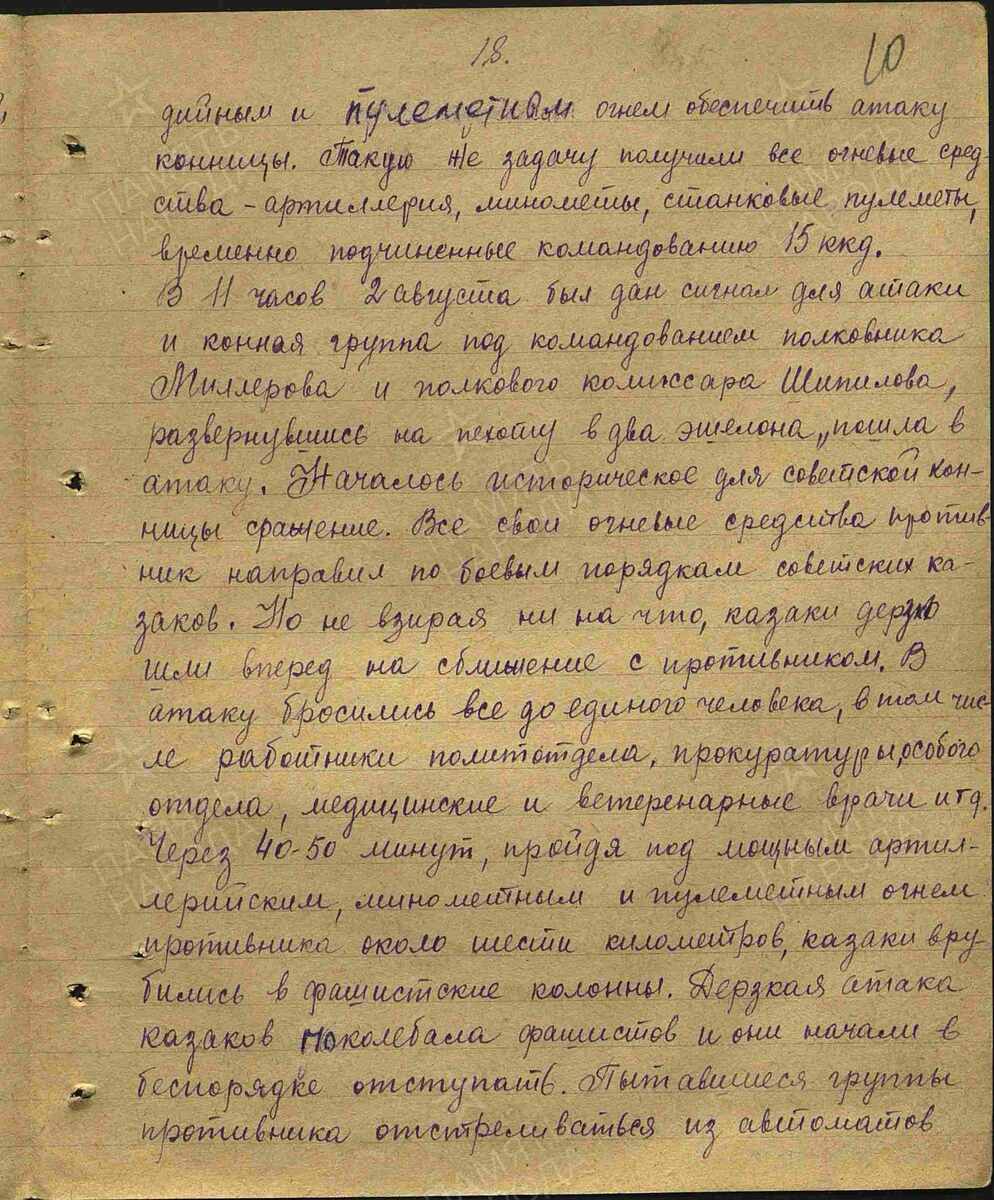 18.
10
дийным и пулеметным огнем обеспечить атаку
конницы. Такую же задачу получили все огневые сред-
ства - артиллерия, минометы, станковые пулеметы,
временно подчиненные командованию 15 ккд.
В 11 часов 2 августа был дан сигнал для атаки
и конная группа под командованием полковника
Миллерова и полкового комиссара Шипилова,
развернувшись на пехоту в два эшелона, пошла в
атаку. Началось историческое для советской кон-
ницы сражение. Все свои огневые средства против-
ник направил по боевым порядкам советских ка-
заков. Но не взирая ни на что, казаки дерзко
шли вперед на сближение с противником. В
атаку бросились все до единого человека, в том чис-
ле работники политотдела, прокуратуры, особого
отдела, медицинские и ветеренарные врачи итд.
Через 40-50 минут, пройдя под мощным артил-
лерийским, минометным и пулеметным огнем
противника около шести километров, казаки вру-
бились в фашистские колонны. Дерзкая атака
казаков поколебала фашистов и они начали в
беспорядке отступать. Пытавшиеся группы
противника отстреливаться из автоматов